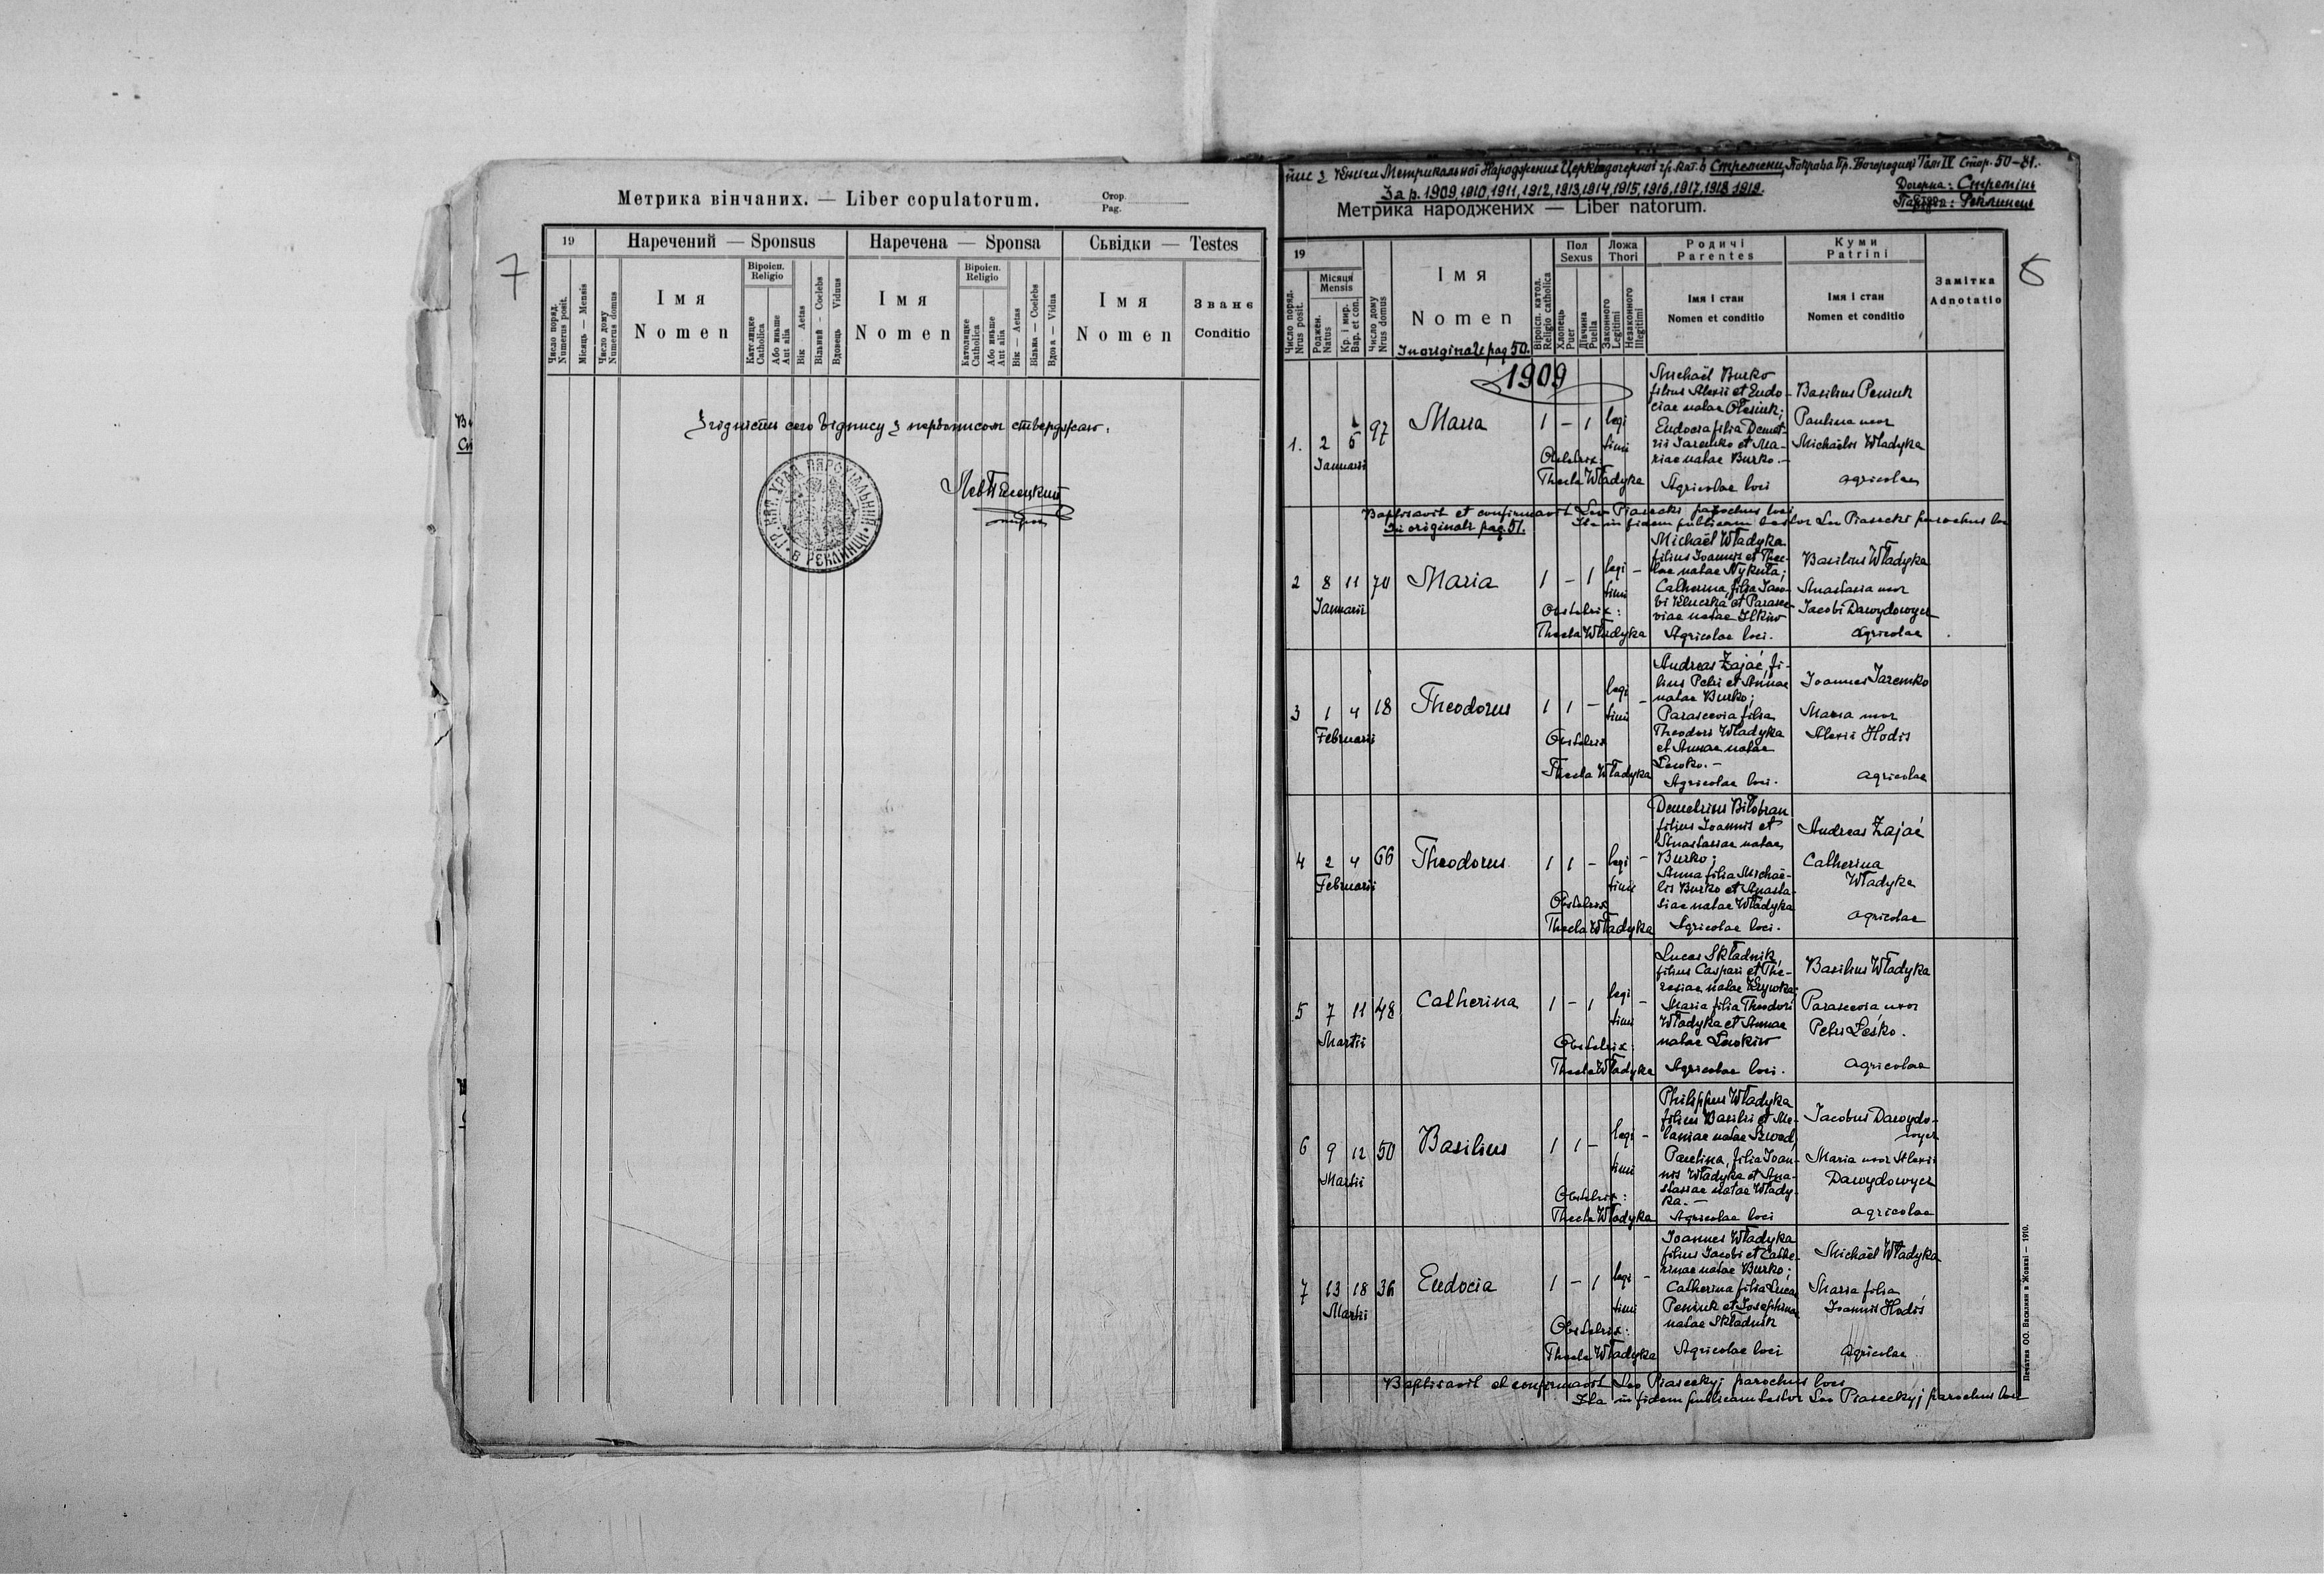 Метрика вінчаних. — Liber copulatorum.
Стор.
Pag.
7
19
Наречений — Sponsus
Наречена — Sponsa
Сьвідки — Testes
Число поряд.
Numerus posit.
Місяць — Mensis
Число дому
Numerus domus
Імя
Nomen
Віроісп.
Religio
Католицке
Catholica
Або иньше
Aut alia
Вік — Aetas
Вільний — Coelebs
Вдовець Viduus
Імя
Nomen
Віроісп.
Religio
Католицке
Catholica
Або иньше
Aut alia
Вік — Aetas
Вільна — Coelebs
Вдова — Vidua
Імя
Nomen
Званє
Conditio
Згідність сего відпису з первописом стверджаю.
ГР. КАТ. УРЯД ПАРОХІЯЛЬНИЙ В РЕКЛИНЦИ
Лев Пясецкий
пис з Книги Метрикальної Народжених Церкви дочерної гр. кат. в Стремени, Покрова Пр. Богородиці Том IV Стор. 50–81.
За р. 1909, 1910, 1911, 1912, 1913, 1914, 1915, 1916, 1917, 1918 1919.
Дочерна: Стремінь
Реклинець
Метрика народжених — Liber natorum.
8
19
Число поряд.
Nrus posit.
Місяця
Mensis
Роджен.
Natus
Кр. і мир.
Bap. et con.
Число дому
Nrus domus
Імя
Nomen
In originale pag 50.
Віроісп. катол.
Religio catholica
Пол
Sexus
Хлопець
Puer
Дівчина
Puella
Ложа
Thori
Законного
Legitimi
Незаконного
Illegitimi
Родичі
Parentes
Імя і стан
Nomen et conditio
Куми
Patrini
Імя і стан
Nomen et conditio
Замітка
Adnotatio
1909
1. 2 6 97 Maria 1 – 1 legi
timi
Januarii
Obstetrix:
Thecla Władyka
Michaël Burko
filius Alexii et Eudo-
ciae natae Olesiuk;
Eudocia filia Demet-
rii Jaremko et Ma-
riae natae Burko. –
Agricolae loci
Basilius Peniuk
Paulina uxor
Michaëlis Władyka
agricolae
Baptisavit et confirmavit Leo Piasecki parochus loci
In originale pag. 51.
Ita in fidem publicam testor Leo Piasecki parochus loci
2 8 11 70 Maria 1 – 1 legi –
timi
Januarii
Obstetrix:
Thecla Władyka
Michaël Władyka
filius Joannis et Thec-
lae natae Nykuta;
Catherina, filia Jaco-
bi Kluczka et Parasce-
viae natae Ilkiw
Agricolae loci.
Basilius Władyka
Anastasia uxor
Jacobi Dawydowycz
agricolae
3 1 4 18 Theodorus 1 1 – legi –
timi
Februarii
Obstetrix
Thecla Władyka
Andreas Zając, fi-
lius Petri et Annae
natae Burko;
Parascevia filia
Theodori Władyka
et Annae natae
Lewko. –
Agricolae loci.
Joannes Jaremko
Maria uxor
Alexii Hodis
agricolae
4 2 4 66 Theodorus 1 1 – legi –
timi
Februarii
Obstetrix
Thecla Władyka
Demetrius Biłobran
filius Joannis et
Anastasiae natae
Burko;
Anna filia Michaë-
lis Burko et Anasta-
siae natae Władyka
Agricolae loci.
Andreas Zając
Catherina
Władyka
agricolae
5 7 11 48 Catherina 1 – 1 legi –
timi
Martii
Obstetrix:
Thecla Władyka
Lucas Składnik,
filius Caspari et The-
resiae natae Krywka;
Maria filia Theodori
Władyka et Annae
natae Lewkiw
Agricolae loci.
Basilius Władyka
Parascevia, uxor
Petri Leśko.
agricolae
6 9 12 50 Basilius 1 1 – legi –
timi
Martii
Obstetrix:
Thecla Władyka
Philippus Władyka
filius Basilii et Me-
laniae natae Szwed,
Paulina, filia Joan-
nis Władyka et Ana-
stasiae natae Włady-
ka. –
Agricolae loci
Jacobus Dawydo-
wycz
Maria uxor Alexii
Dawydowycz
agricolae
7 13 18 36 Eudocia 1 – 1 legi –
timi
Martii
Obstetrix:
Thecla Władyka
Joannes Władyka
filius Jacobi et Cathe-
rinae natae Burko;
Catherina filia Lucae
Peniuk et Josephinae
natae Składnik
Agricolae loci
Michaël Władyka
Maria filia
Joannis Hodis
agricolae
Baptisavit et confirmavit Leo Piaseckyj parochus loci
Ita in fidem publicam testor Leo Piaseckyj parochus loci
Печатня ОО. Василиян в Жовкві — 1910.